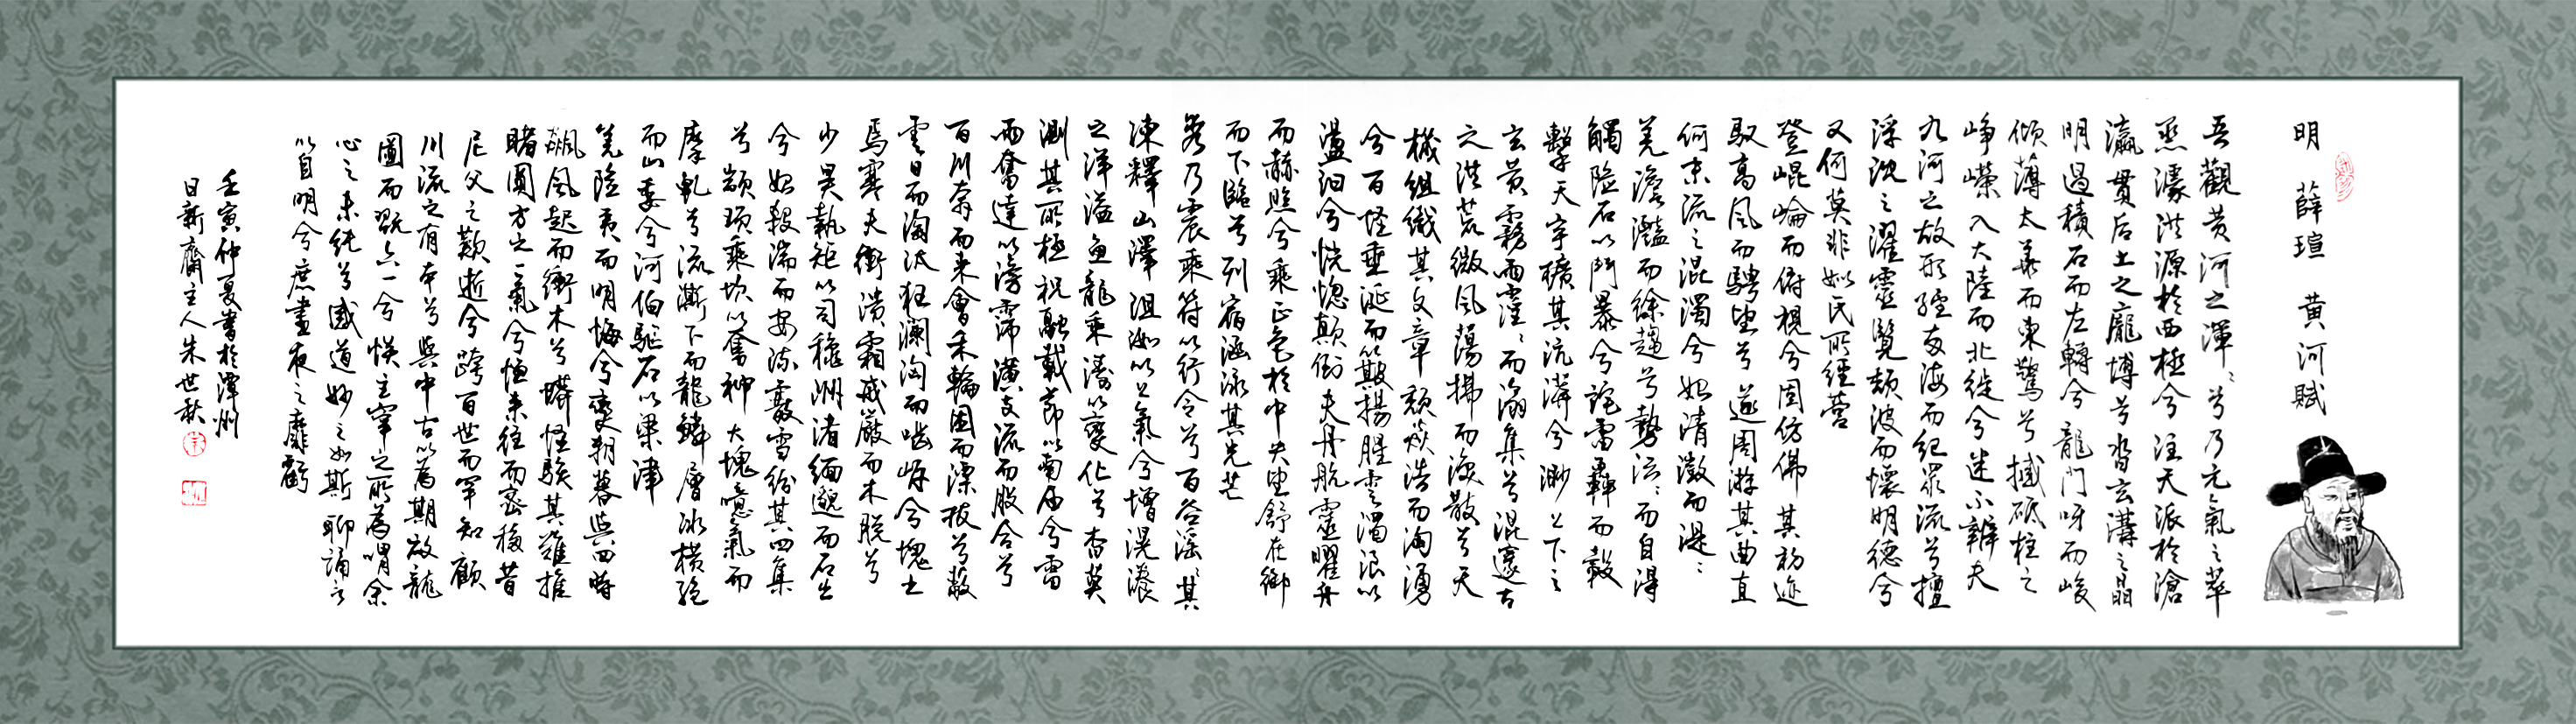 明　薛瑄　黄河賦
吾觀黄河之渾渾兮乃元氣之萃
烝濛洪源於西極兮注天派於滄
瀛貫后土之龐博兮沓玄溝之晶
明過積石而左轉兮龍門呀而峻
傾薄太華而東騖兮撼砥柱之
崢嶸入大陸而北徙兮迷不辨夫
九河之故形經兩海而紀眾流兮擅
浮沈之濯靈覽頹波而懷明德兮
又何莫非姒氏所經營
登崐崘而俯視兮固仿佛其初迹
馭高風而騁望兮遂周游其曲直
何末流之混濁兮始清澂而湜湜
羌澹灩而徐趨兮勢沄沄而自得
觸險石以鬥暴兮詭雷轟而轂
擊天宇曠其沆漭兮渺上下之
玄黄霧雨霪霪而滃集兮混邃古
之洪荒微風蕩拂而渙散兮天
機組織其文章頹焱浩而洶湧
兮百怪垂涎而簸揚腥雲濁浪以
盪汩兮恍惚顛倒夫丹航靈曜丹
而赫煦兮乘正色於中央望舒在御
而下臨兮列宿涵泳其光芒
若乃震乘符以行令兮百谷滛滛其
凍釋山澤沮洳以上氣兮增滉瀁
之洋溢魚龍乘濤以變化兮杳莫
測其所極祝融載節以南届兮雷
雨奮達以滂霈潢支流而股合兮
百川奔而来會禾輪囷而漂拔兮蔽
雲日而淘汰狂瀾洶而嚙岸兮塊土
焉塞夫衝潰霜戒嚴而木脱兮
少昊執矩以司穐洲渚緬邈而石出
兮始殺湍而安流霰雪紛其四集
兮顓頊乘坎以奮神大塊噫氣而
摩軋兮流澌下而龍鱗層冰横絶
而山委兮河伯驅石以梁津
羌陰夷而明晦兮變朝暮與四時
飇風起而衝木兮蟒怪駭其難推
睹圓方之一氣兮恒来往而密移昔
尼父之歎逝兮跨百世而罕知顧
川流之有本兮與中古以為期故龍
圖而翫六一兮悞主宰之所為喟余
心之未純兮感道妙之如斯聊誦言
以自明兮庶晝夜之靡虧
壬寅仲夏書於潭州
日新齋主人朱世秋